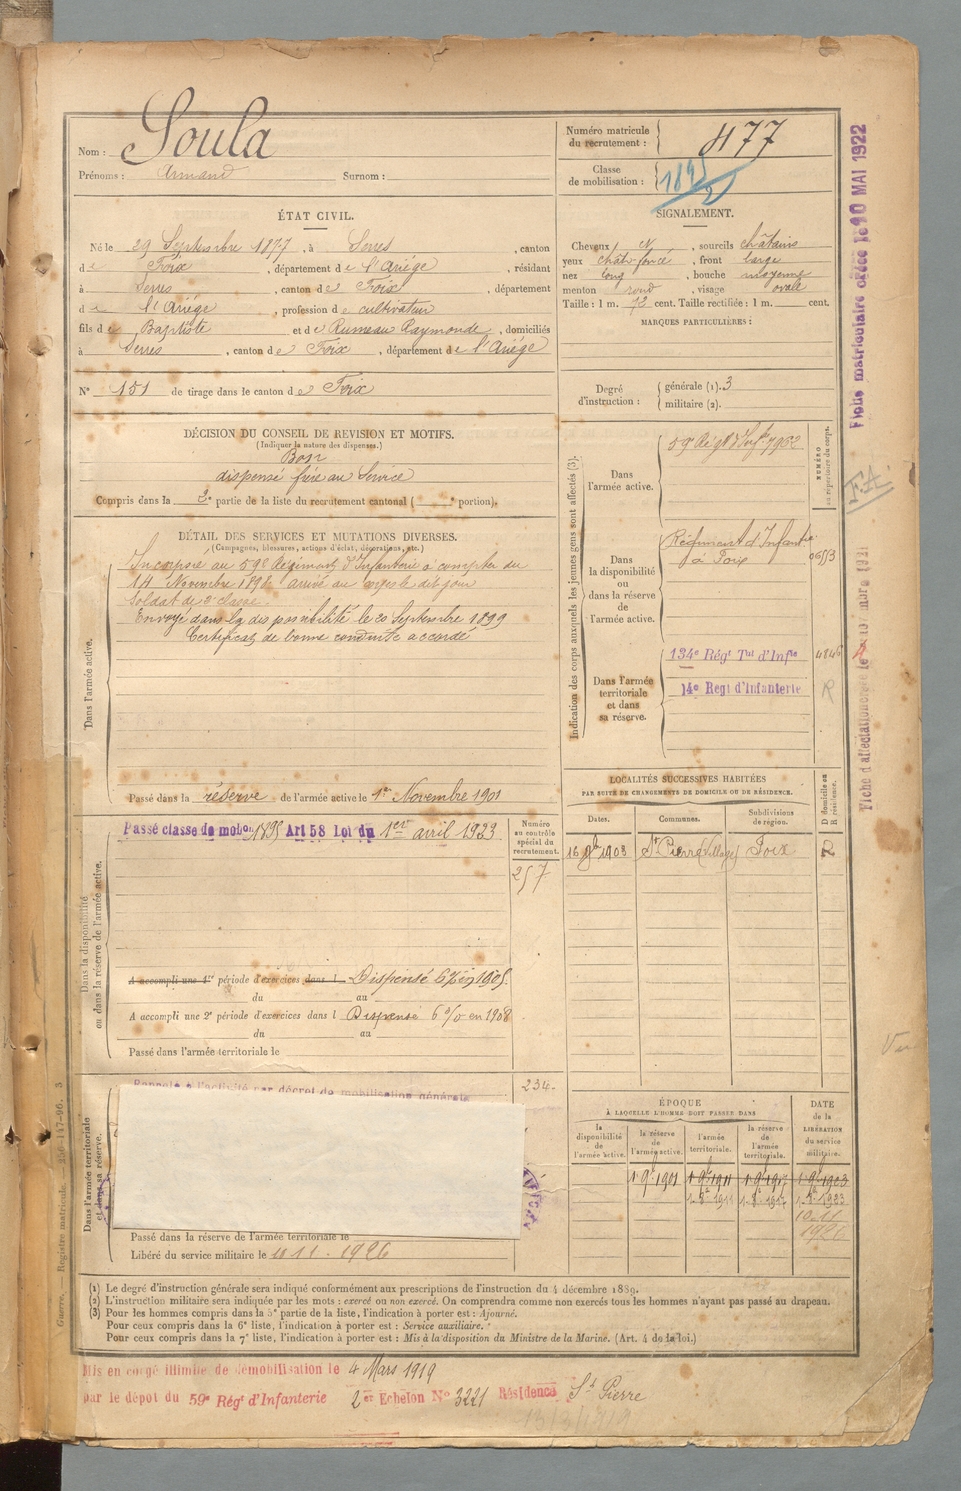 Nom : Soula
Prénoms : Armand Surnom :
Numéro matricule du recrutement : 477
Classe de mobilisation :
ÉTAT CIVIL.
Né le 29 Septembre 1877, à Serres, canton
de Foix, département de l'Ariége, résidant
à Serres, canton de Foix, département
de l'Ariége, profession de cultivateur
fils de Baptiste et de Rumeau Raymonde, domiciliés
à Serres, canton de Foix, département de l'Ariége
N° 151 de tirage dans le canton de Foix
SIGNALEMENT.
Cheveux, sourcils châtains
yeux chât. foncé, front large
nez long, bouche moyenne
menton rond, visage ovale
Taille : 1 m. 72 cent. Taille rectifiée : 1 m. cent.
MARQUES PARTICULIÈRES :
Degré d'instruction : générale (1). 3
militaire (2).
DÉCISION DU CONSEIL DE REVISION ET MOTIFS.
(Indiquer la nature des dispenses.)
Bon
dispensé frère au Service
Compris dans la 2e partie de la liste du recrutement cantonal ( e portion).
DÉTAIL DES SERVICES ET MUTATIONS DIVERSES.
(Campagnes, blessures, actions d'éclat, décorations, etc.)
Dans l'armée active.
Incorporé au 59e Régiment d'Infanterie à compter du
14 Novembre arrivé au corps le dit jour
Soldat de 2e classe.
Envoyé dans la disponibilité le 20 Septembre 1899
Certificat de bonne conduite accordé
Passé dans la réserve de l'armée active le 1er Novembre 1901
Indication des corps auxquels les jeunes gens sont affectés (3).
NUMÉRO au répertoire du corps.
Dans l'armée active.
59e Régt d'Inf.ie 7962
Dans la disponibilité ou dans la réserve de l'armée active.
Régiment d'Infanterie
à Foix
Dans l'armée territoriale et dans sa réserve.
134e Régt Tal d'Infie
14e Regt d'Infanterie
R
LOCALITÉS SUCCESSIVES HABITÉES
PAR SUITE DE CHANGEMENTS DE DOMICILE OU DE RÉSIDENCE.
Dates. Communes. Subdivisions de région. D domicile ou R résidence.
16 1903 St Pierre (village) Foix R
Dans la disponibilité ou dans la réserve de l'armée active.
Passé classe de mobon 1895 Art 58 Loi du 1er avril 1923
Numéro au contrôle spécial du recrutement.
257
A accompli une 1re période d'exercices dans l Dispensé 6% en 1905.
du au
A accompli une 2e période d'exercices dans l Dispensé 6 % en 1908
du au
Passé dans l'armée territoriale le
Rappelé à l'activité par décret de mobilisation générale
234
Dans l'armée territoriale et dans sa réserve.
Passé dans la réserve de l'armée territoriale le
Libéré du service militaire le 10 11 . 1926
ÉPOQUE
À LAQUELLE L'HOMME DOIT PASSER DANS
la disponibilité de l'armée active. la réserve de l'armée active. l'armée territoriale. la réserve de l'armée territoriale. DATE de la LIBÉRATION du service militaire.
10.11
1926
(1) Le degré d'instruction générale sera indiqué conformément aux prescriptions de l'instruction du 4 décembre 1889.
(2) L'instruction militaire sera indiquée par les mots : exercé ou non exercé. On comprendra comme non exercés tous les hommes n'ayant pas passé au drapeau.
(3) Pour les hommes compris dans la 5e partie de la liste, l'indication à porter est : Ajourné.
Pour ceux compris dans la 6e liste, l'indication à porter est : Service auxiliaire.
Pour ceux compris dans la 7e liste, l'indication à porter est : Mis à la disposition du Ministre de la Marine. (Art. 4 de la loi.)
Mis en congé illimité de démobilisation le 4 Mars 1919
par le dépôt du 59e Régt d'Infanterie 2er Echelon N° 3221 Résidence St Pierre
13/3/1919
Fiche matriculaire créée le 10 MAI 1922
F.A.
Guerre. Registre matricule. 256-147-96. 3